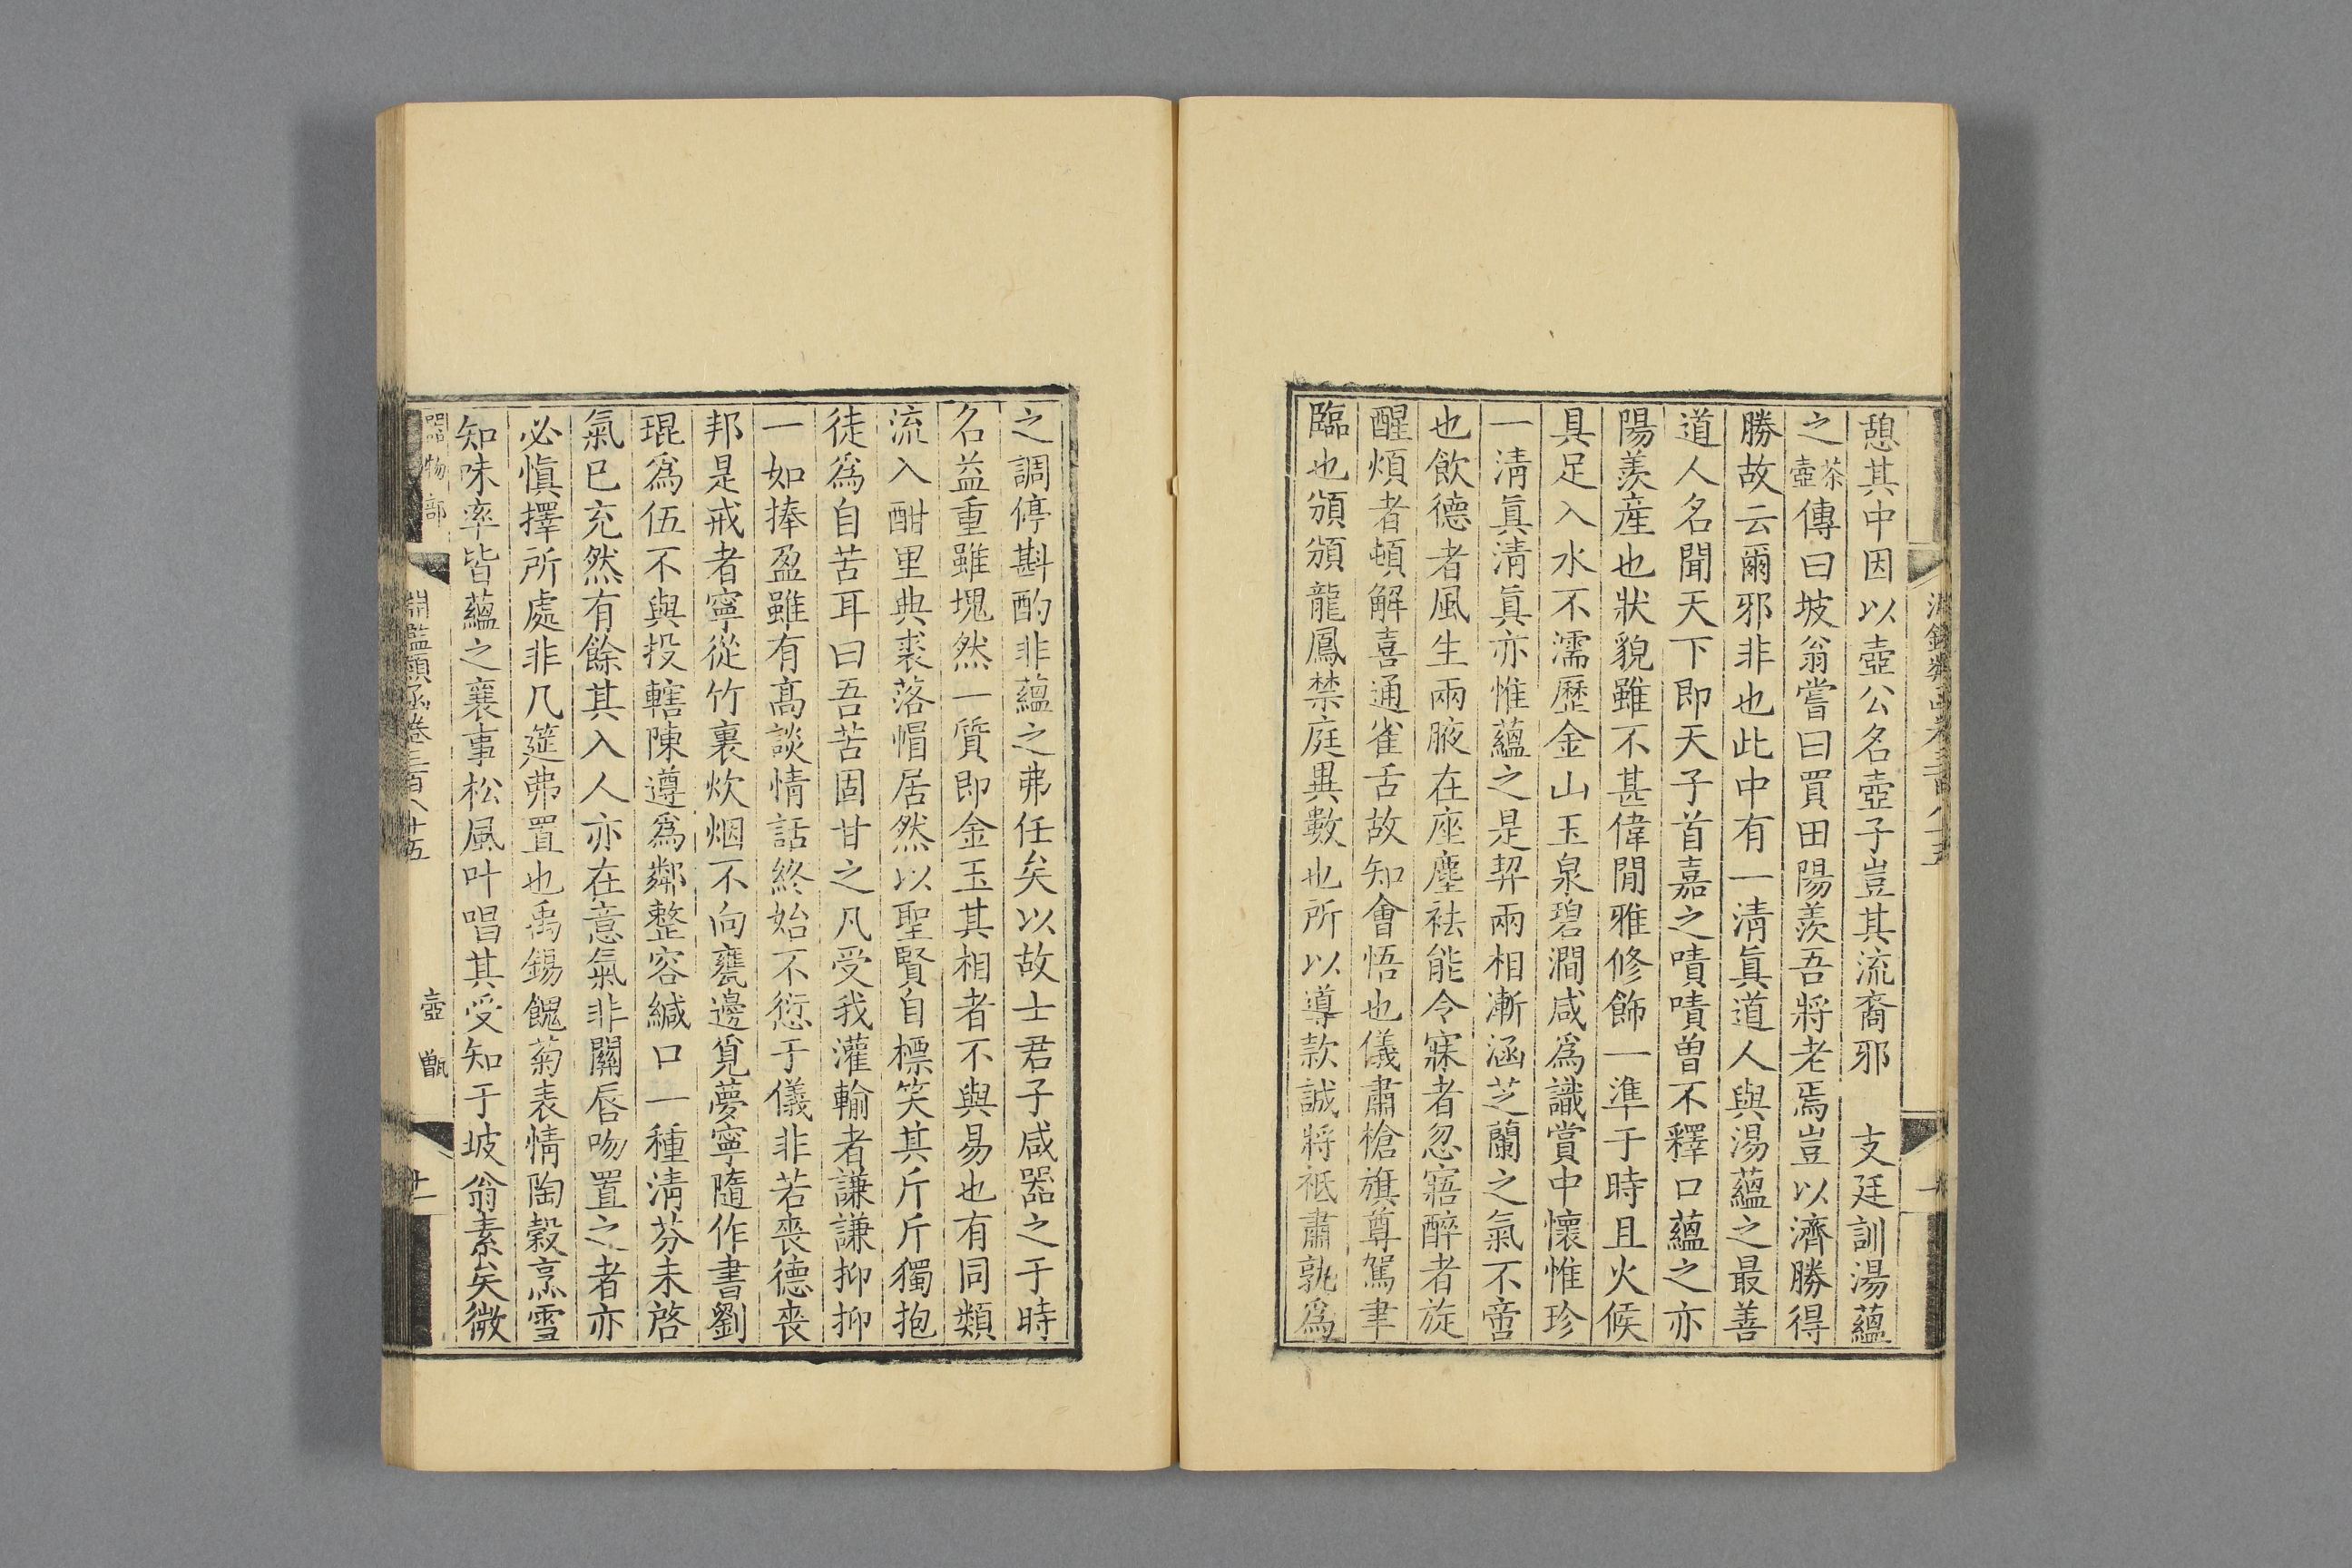 憩其中因以壺公名壺子豈其流裔邪　支廷訓湯蘊
之茶壺傳曰坡翁嘗曰買田陽羨吾將老焉豈以濟勝得
勝故云爾邪非也此中有一清眞道人與湯蘊之最善
道人名聞天下即天子首嘉之嘖嘖曾不釋口蘊之亦
陽羨産也狀貌雖不甚偉閒雅修飾一準于時且火候
具足入水不濡歷金山玉泉碧澗咸爲識賞中懷惟珍
一清眞清眞亦惟蘊之是契兩相漸涵芝蘭之氣不啻
也飲德者風生兩腋在座塵袪能令寐者忽寤醉者旋
醒煩者頓解喜通雀舌故知會悟也儀肅槍旗尊駕聿
臨也頒頒龍鳳禁庭異數也所以導款誠將祗肅孰爲
之調停斟酌非蘊之弗任矣以故士君子咸器之于時
名益重雖塊然一質即金玉其相者不與易也有同類
流入酣里典裘落帽居然以聖賢自標笑其斤斤獨抱
徒爲自苦耳曰吾苦固甘之凡受我灌輸者謙謙抑抑
一如捧盈雖有高談情話終始不愆于儀非若喪德喪
邦是戒者寧從竹裏炊烟不向甕邊覓夢寧隨作書劉
琨爲伍不與投轄陳遵爲鄰整容緘口一種清芬未啓
氣已充然有餘其入人亦在意氣非關唇吻置之者亦
必愼擇所處非几筵弗置也禹錫餽菊表情陶穀烹雪
知味率皆蘊之襄事松風叶唱其受知于坡翁素矣微
器物部
淵鑑類函卷三百八十五
壺　甑
十一